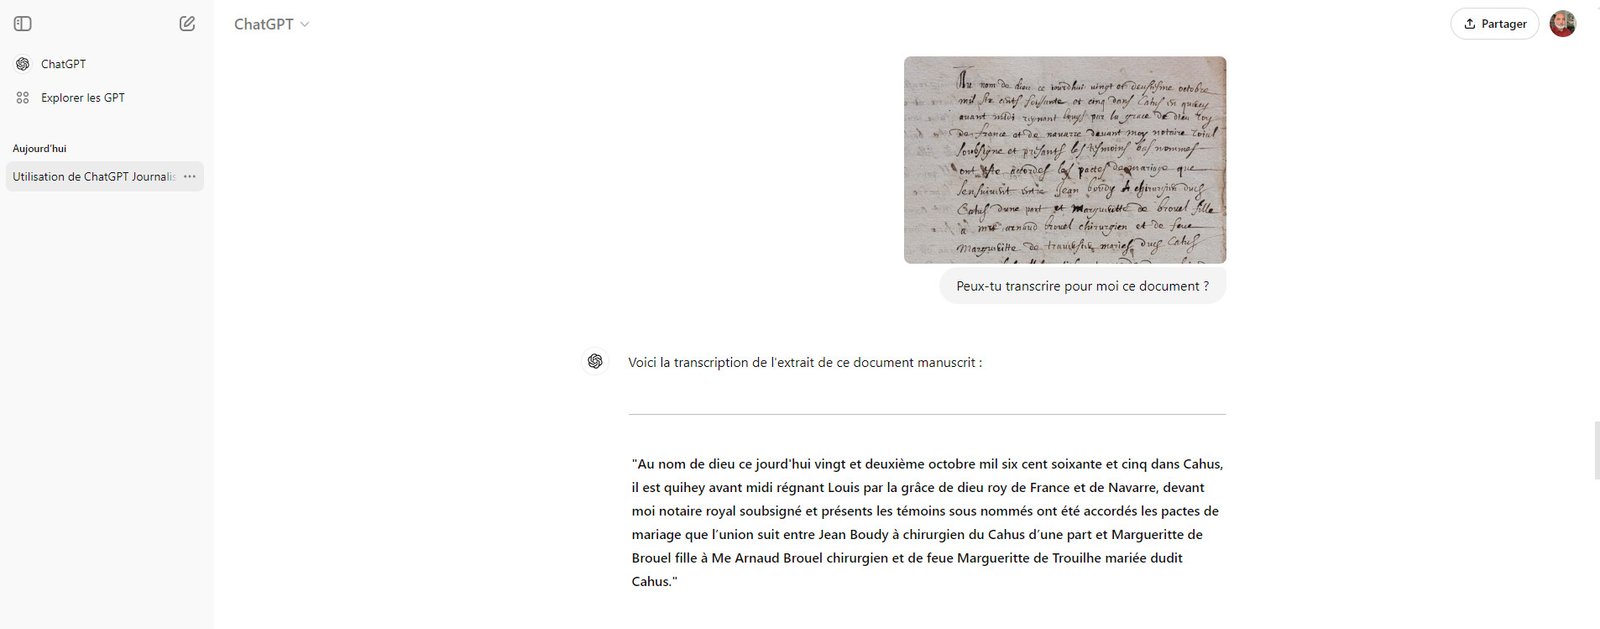 ChatGPT
Partager
ChatGPT
Explorer les GPT
Aujourd'hui
Utilisation de ChatGPT Journalis
Au nom de dieu ce jourdhuy vingt et deusiesme octobre
mil six cents soissante et cinq dans Catus en quercy
avant midi regnant louys par la grace de dieu roy
de france et de navarre devant moy notaire roial
soubsigne et presants les tesmoins bas nommes
ont este accordes les pactes de mariage que
sensuivent entre Jean boudy chirurgien dud
Catus dune part et Margueritte de brouel fille
a mre arnaud brouel chirurgien et de feue
Margueritte de maries dud Catus
Peux-tu transcrire pour moi ce document ?
Voici la transcription de l'extrait de ce document manuscrit :
"Au nom de dieu ce jourd'hui vingt et deuxième octobre mil six cent soixante et cinq dans Cahus,
il est quihey avant midi régnant Louis par la grâce de dieu roy de France et de Navarre, devant
moi notaire royal soubsigné et présents les témoins sous nommés ont été accordés les pactes de
mariage que l'union suit entre Jean Boudy à chirurgien du Cahus d'une part et Margueritte de
Brouel fille à Me Arnaud Brouel chirurgien et de feue Margueritte de Trouilhe mariée dudit
Cahus."